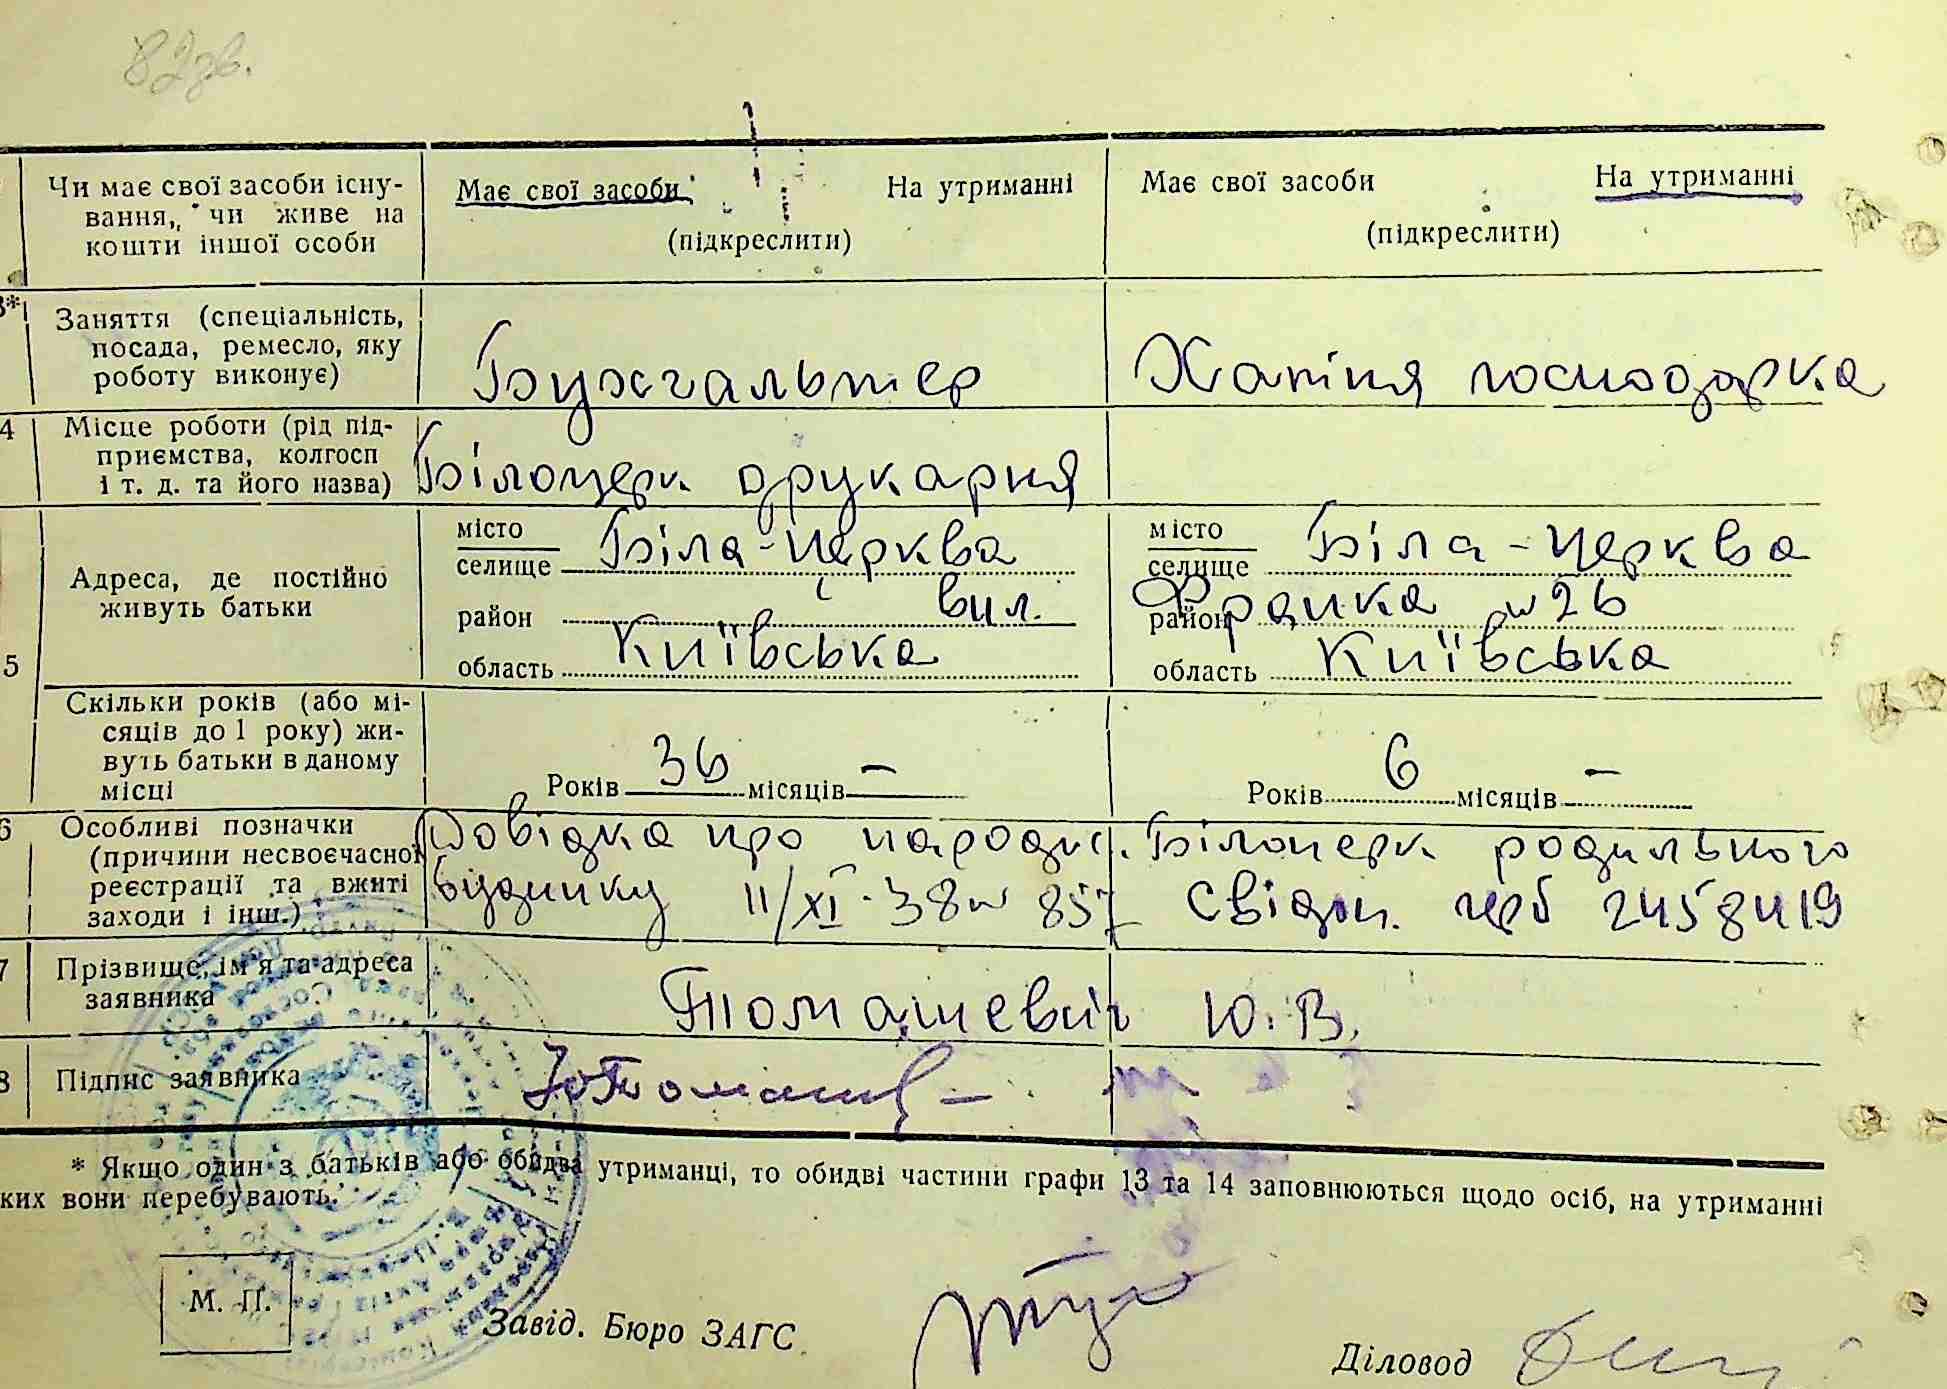 82зв.
Чи має свої засоби існу-
вання, чи живе на
кошти іншої особи
Має свої засоби На утриманні
(підкреслити)
Має свої засоби На утриманні
(підкреслити)
3*
Заняття (спеціальність,
посада, ремесло, яку
роботу виконує)
Бухгальтер
Хатня господарка
4
Місце роботи (рід під-
приємства, колгосп
і т. д. та його назва)
Білоцерк друкарня
5
Адреса, де постійно
живуть батьки
місто
селище Біла-Церква
район вул.
область Київська
місто
селище Біла-Церква
район Франка №26
область Київська
Скільки років (або мі-
сяців до 1 року) жи-
вуть батьки в даному
місці
Років 36 місяців —
Років 6 місяців —
6
Особливі позначки
(причини несвоєчасної
реєстрації та вжиті
заходи і інш.)
Довідка про народж. Білоцерк родильного
будинку 11/XI-38 № 857 свідоц.
7
Прізвище, ім'я та адреса
заявника
Томашевич Ю. В.
8
Підпис заявника
* Якщо один з батьків або обидва утриманці, то обидві частини графи 13 та 14 заповнюються щодо осіб, на утриманні
ких вони перебувають.
М. П.
Завід. Бюро ЗАГС
Діловод